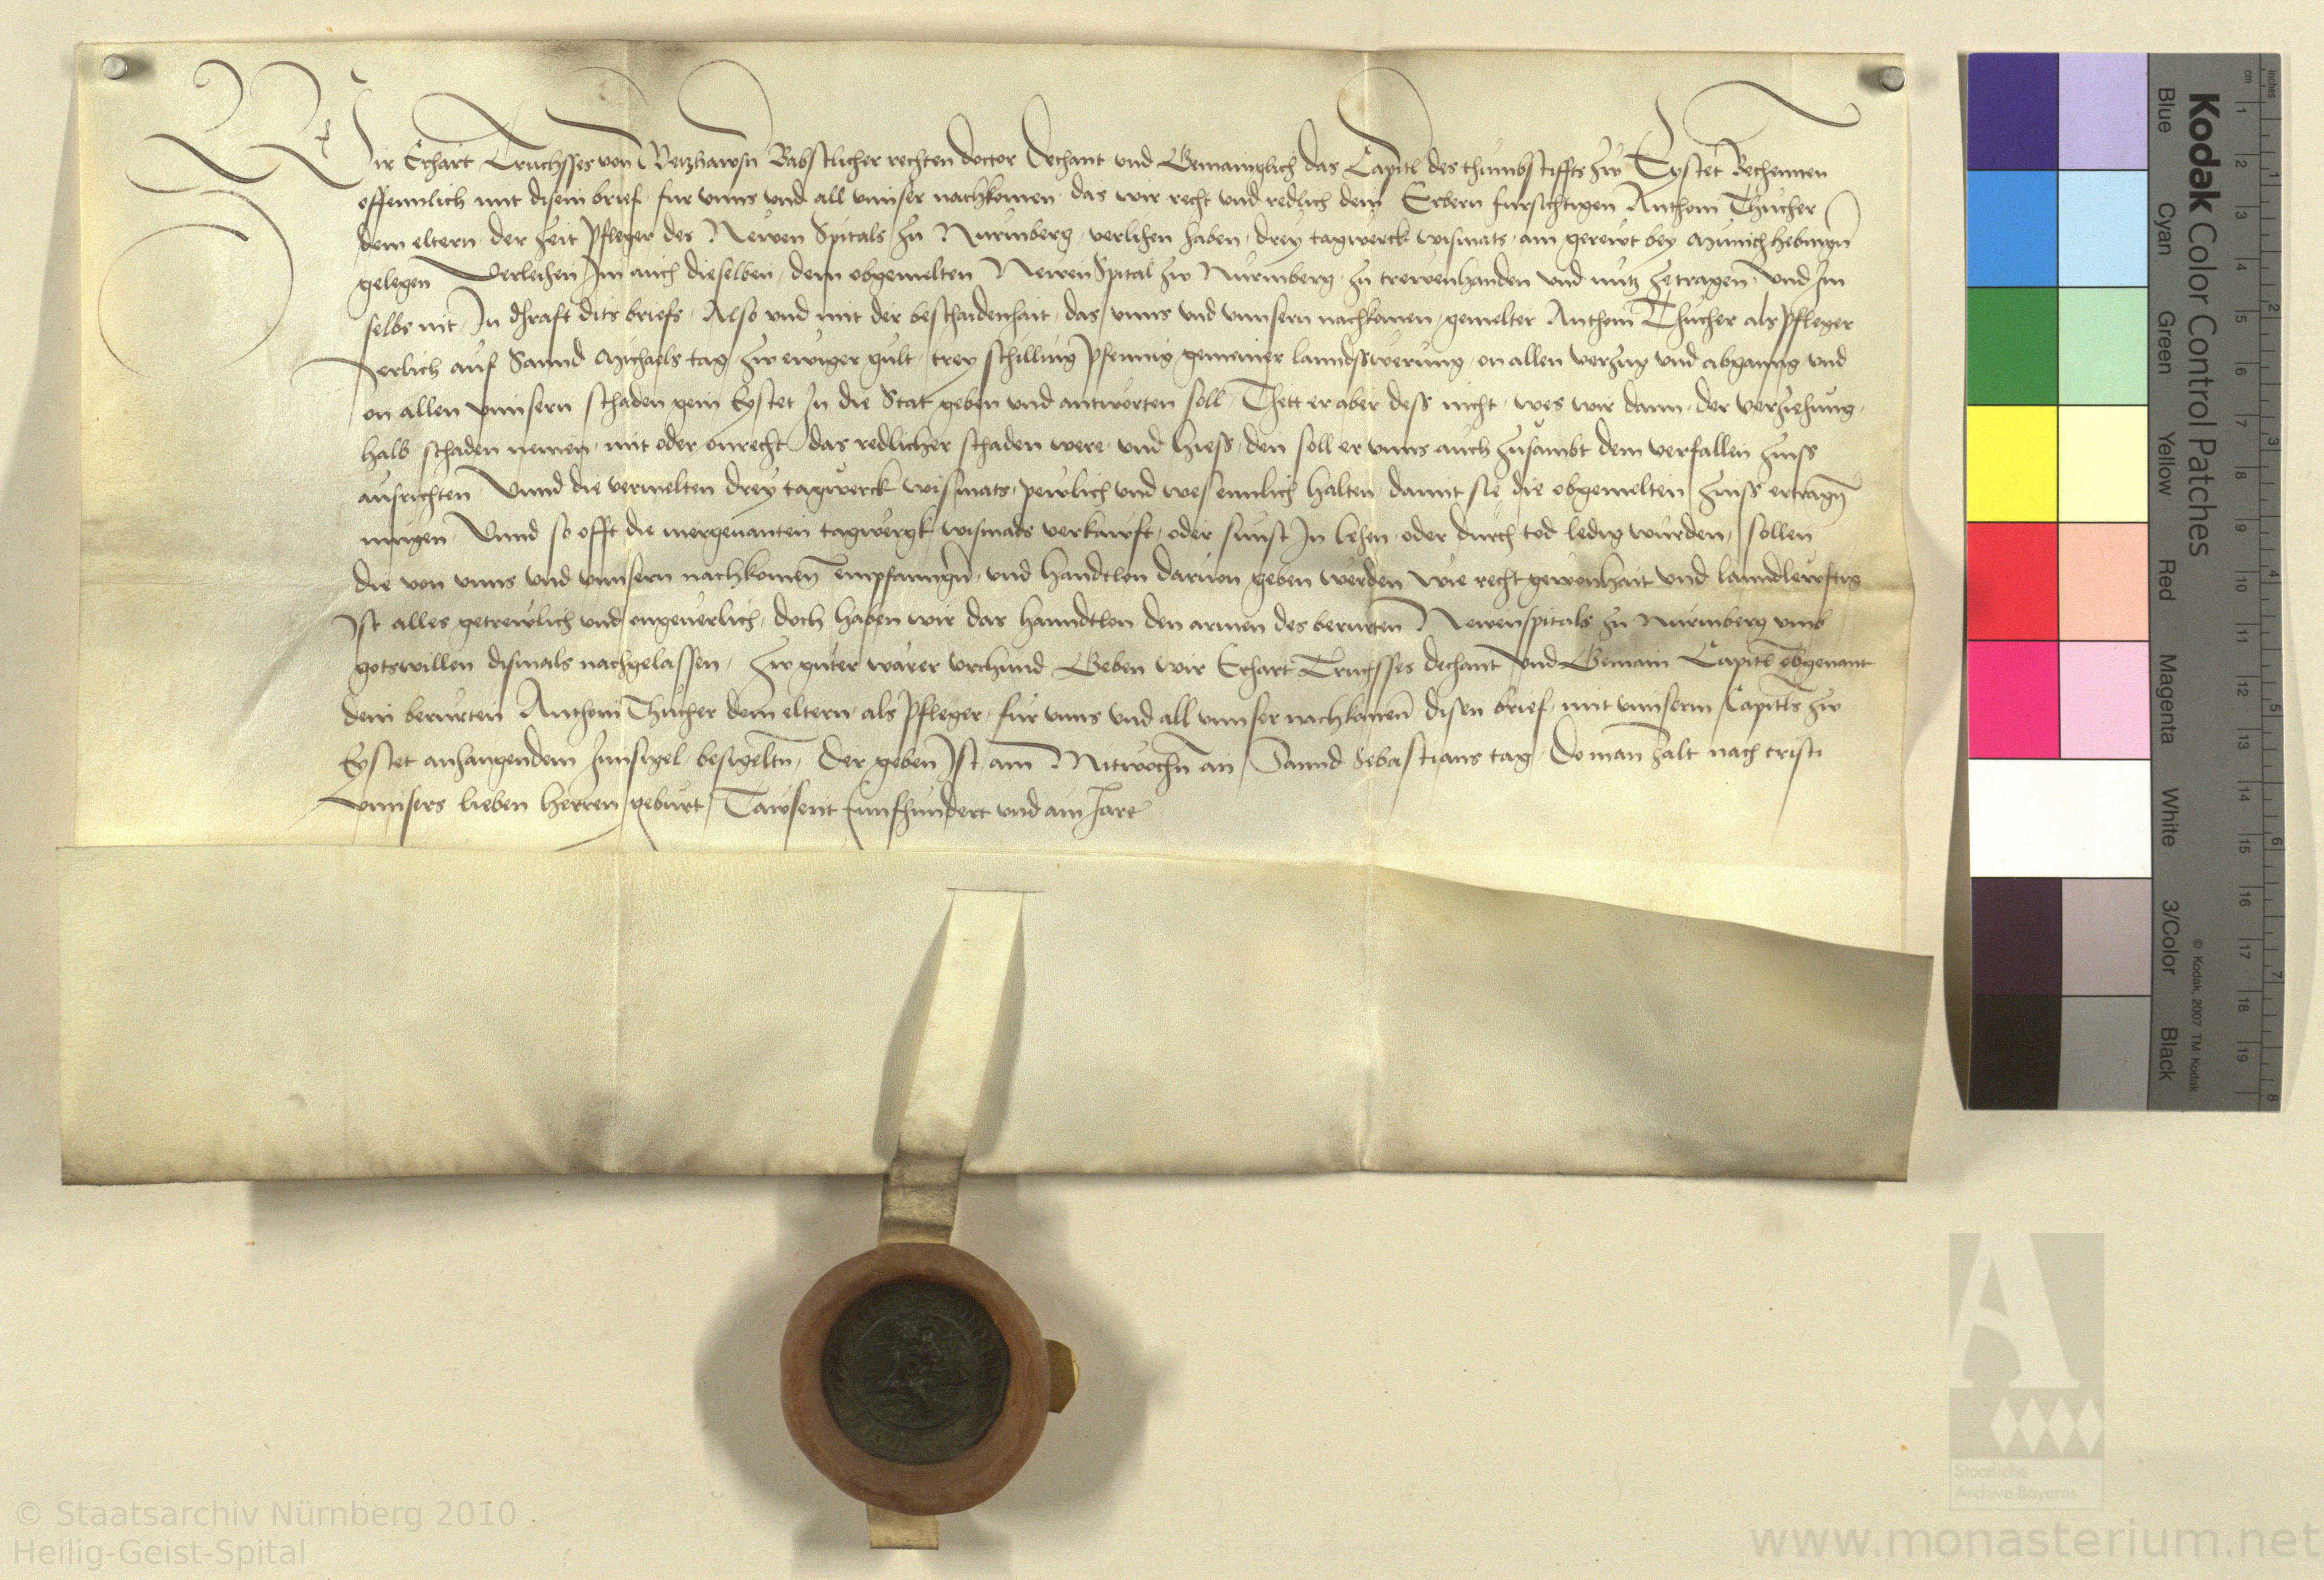 Wir Erhart Truchsses von Wetzhawsn Babstlicher rechten doctor Dechant und Gemainglich das Capitl des thumbstiffts zw Eystet Bechennen
offennlich mit disem brief fur unns und all unnser nachkomen das wir recht und redlich dem Erbern fursichtigen Anthoni Thucher
dem eltern der zeit Pfleger des Newen Spitals zu Nurmberg verlihen haben drey tagwerck wismats am gerewt bey
gelegen Verleihen Im auch dieselben dem obgemelten Newen Spital zw Nurmberg zu trewenhanden und nutz zetragen und Im
selbs nit In chraft dits briefs Also und mit der beschaidenhait das unns und unnsern nachkomen gemelter Anthoni Thucher als Pfleger
Jerlich auf Sannd Michaels tag zw ewiger gult trey schilling Pfennig gemainer lanndsswerung on allen verzug und abganng und
on allen unnsern schaden gein Eystet In die Stat geben und antworten soll Thett er aber dess nicht wes wir dann der verziehung
halb schaden nemen mit oder onrecht das redlicher schaden were und hiess den soll er unns auch zusambt dem verfallen zinss
ausrichten Unnd die vermelten drey tagwerck wissmats pewlich und wesennlich halten damit sie die obgemelten zinss ertragn
mugen Unnd so offt die mergenanten tagwergk wismads verkawft oder sunst In lehen oder durch tod ledig wurden sollen
die von unns und unnsern nachkomen empfanngn und handtlon daruon geben werden wie recht gewonhait und lanndlewftig
Ist alles getrewlich und ongeuerlich doch haben wir das hanndtlon den armen des berurten Newenspitals zu Nurmberg umb
gotswillen dismals nachgelassen Zw guter warer urchund Geben wir Erhart Truchsses dechant und Gemain Capitl obgenant
dem berurten Anthoni Thucher dem eltern als Pfleger fur unns und all unnser nachkomen disen brief mit unnserm Capitls zw
Eystet anhangendem Innsigel besigeltn Der geben Ist am Mitwochn an Sannd Sebastians tag Do man zalt nach cristi
Unnsers lieben herren geburt Tawsent funfhundert und ain Jare
Kodak Color Control Patches
Blue Cyan Green Yellow Red Magenta White 3/Color Black
© Kodak, 2007 TM: Kodak
inches 1 2 3 4 5 6 7 8
cm 1 2 3 4 5 6 7 8 9 10 11 12 13 14 15 16 17 18 19
Staatliche
Archive Bayerns
© Staatsarchiv Nürnberg 2010
Heilig-Geist-Spital
www.monasterium.net